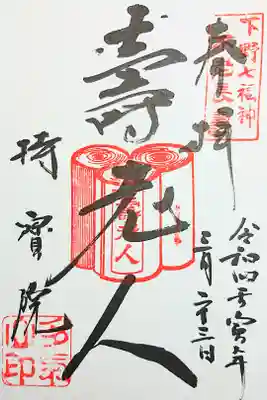 奉拝
下野七福神
不老長寿
令和四壬寅年
三月二十三日
壽老人
壽老人
持寳院